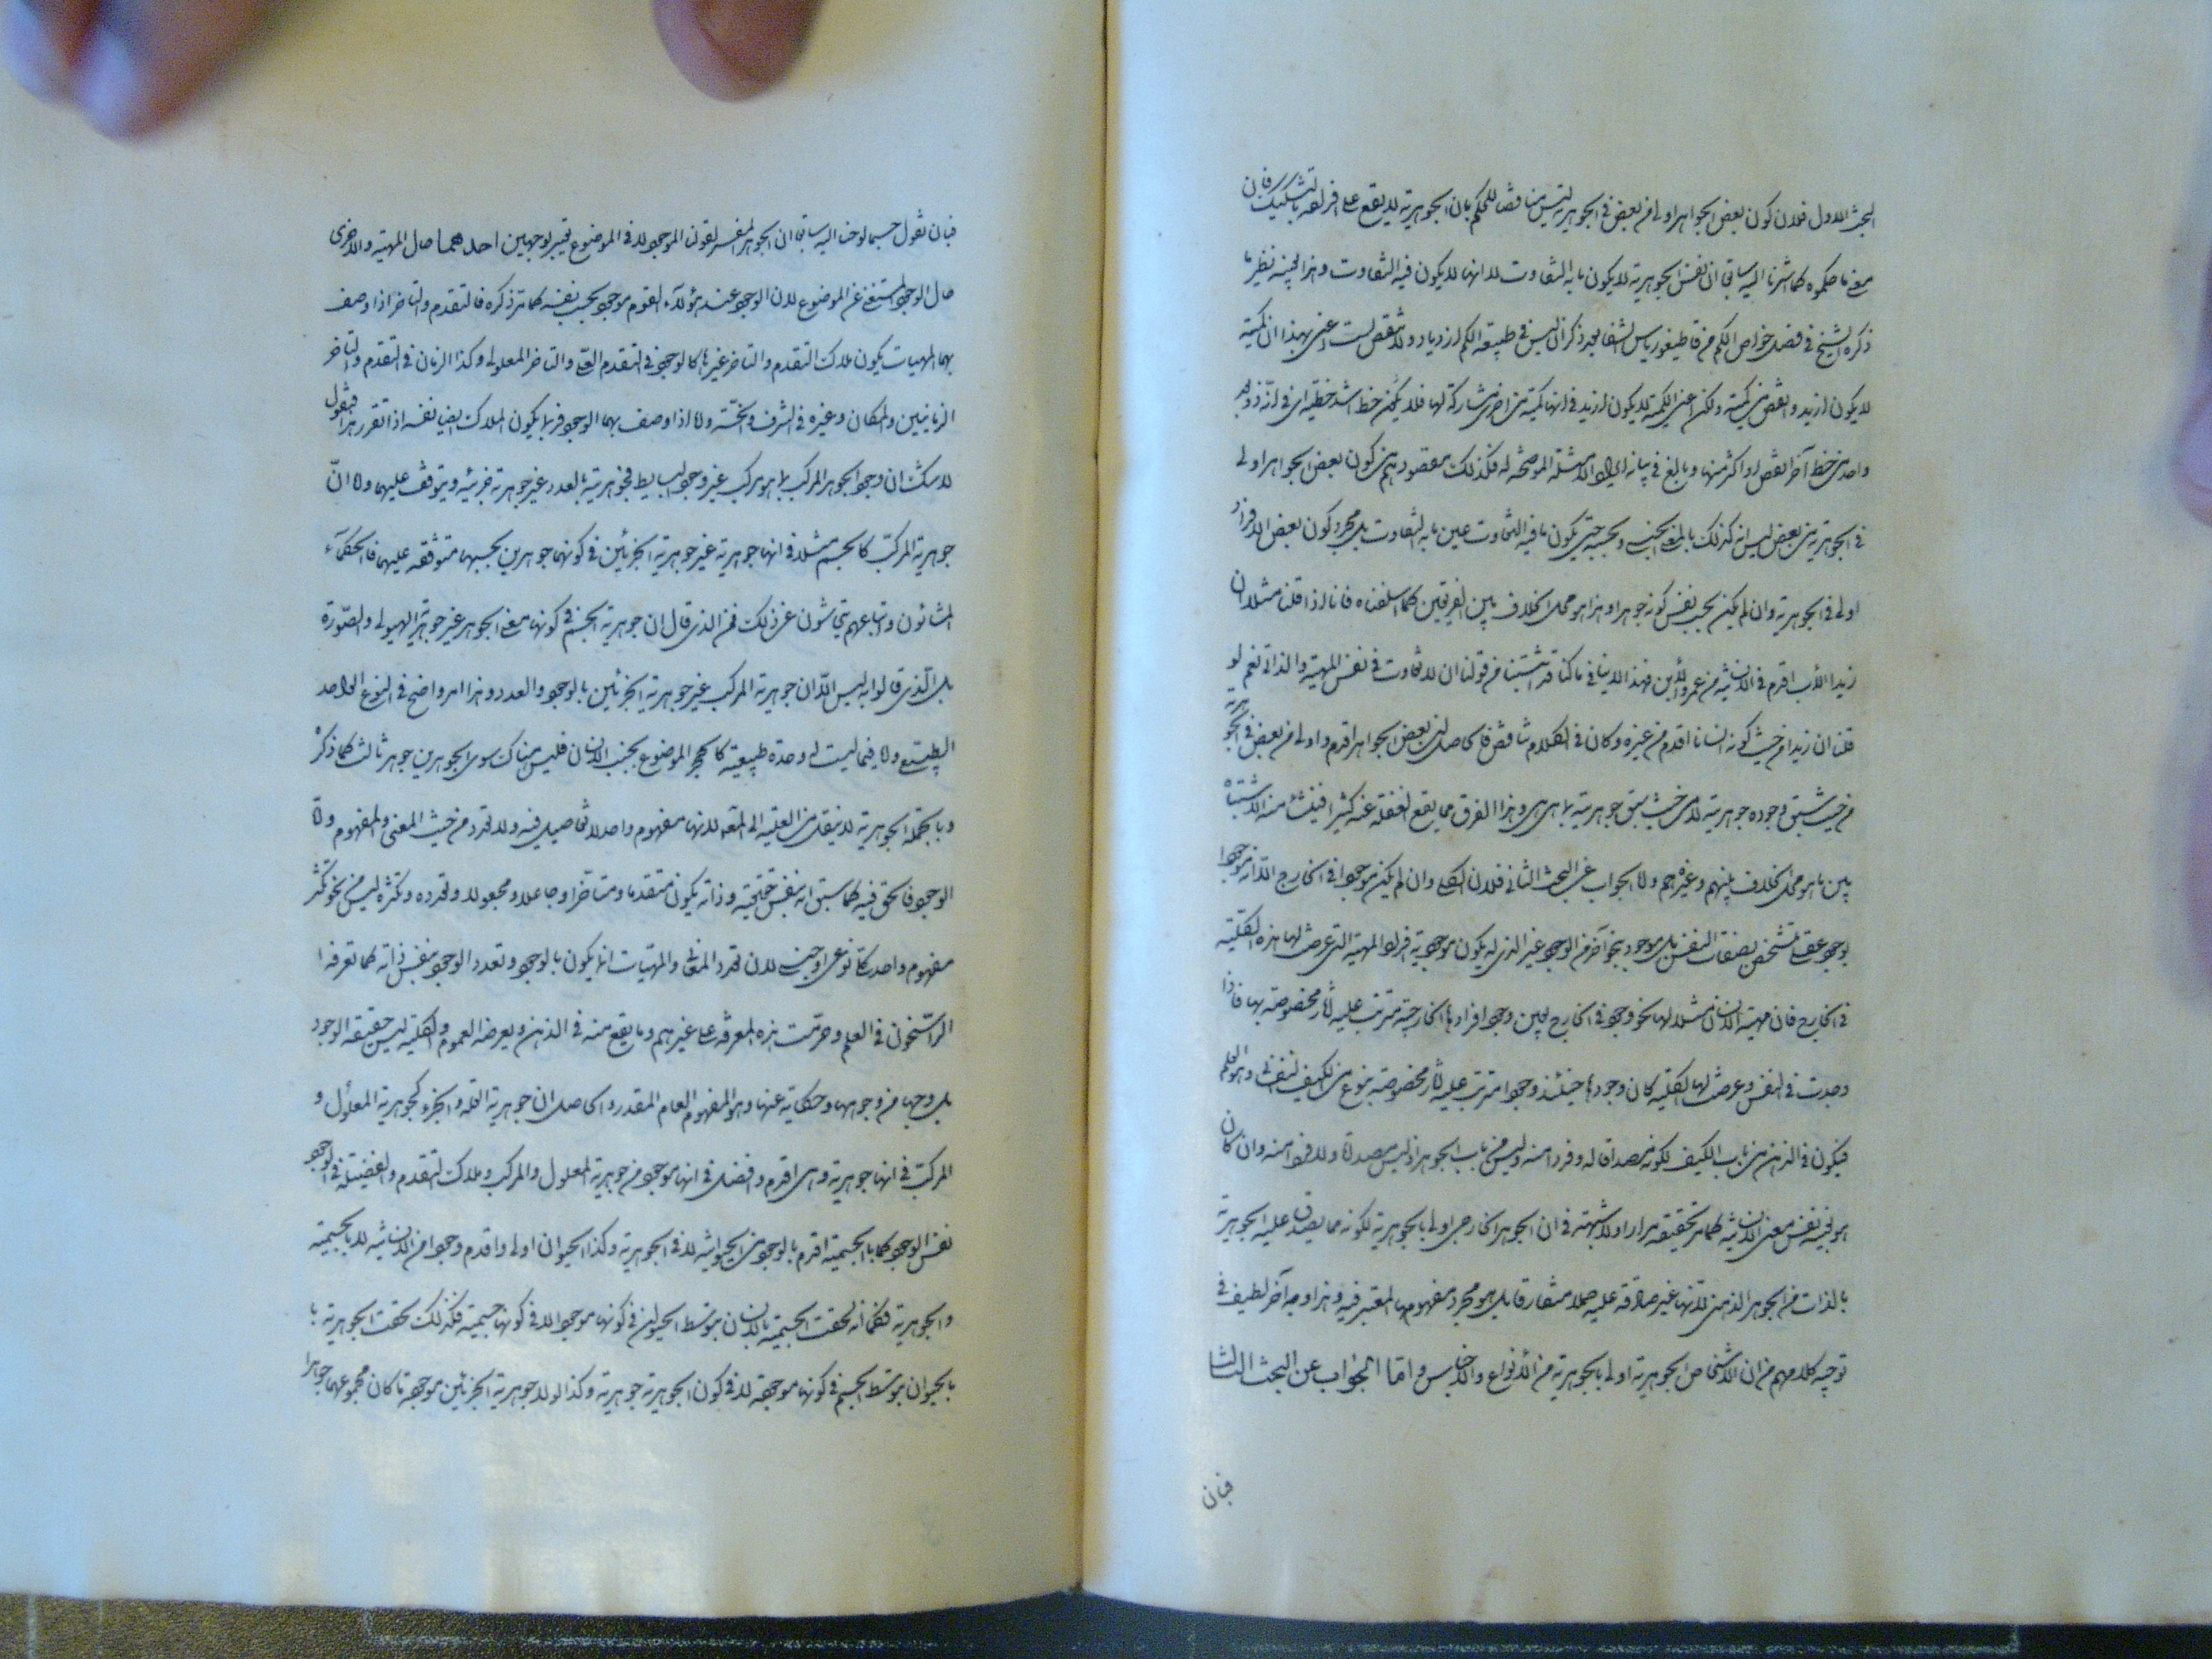 البحث الاول فلان كون بعض الجواهر اولى من بعض فى الجوهرية ليس مناقضا للحكم بان الجوهرية لا يقع على افرادها بالتشكيك فان
معنى ما حكموه كما اشرنا اليه سابقا ان نفس الجوهرية لا يكون ما به التفاوت لا انها لا يكون فيه التفاوت وهذا بعينه نظير ما
ذكره الشيخ فى فصل خواص الكم من قاطيغورياس الشفا بعد ذكر ان ليس فى طبيعة الكم ازدياد ولا تنقص لست اعنى بهذا ان كمية
لا يكون ازيد وانقص من كمية ولكن اعنى ان كمية لا يكون ازيد فى انها كمية من اخرى مشاركة لها فلا يكون خط اشد خطية اى فى انه ذو بعد
واحد من خط آخر انقص او اكثر منها وبالغ فى بيانه بايراد الامثلة الموضحة له فكذلك مقصودهم من كون بعض الجواهر اولى
فى الجوهرية من بعض ليس انه كذلك بالمعنى الجنسى وبحسبه حتى يكون ما فيه التفاوت عين ما به التفاوت بل مجرد كون بعض الافراد
اولى فى الجوهرية وان لم يكن بحسب نفس كونه جوهرا وهذا هو محل الخلاف بين الفريقين كما اسلفناه فانا اذا قلنا مثلا ان
زيدا الأب اقدم فى الانسانية من عمرو الأبن فهذا لا ينافى ما كنا قد اثبتنا من قولنا ان لا تفاوت فى نفس المهية والذاتى نعم لو
قلنا ان زيدا من حيث كونه انسانا اقدم من غيره وكان فى الكلام تناقض فالحاصل ان بعض الجواهر اقدم واولى من بعض فى الجوهرية
من حيث سبق وجوده جوهرية لا من حيث سبق جوهرية بما هى هى وهذا الفرق مما يقع الغفلة عنه كثيرا فينشأ منه الاشتباه
بين ما هو محل الخلاف بينهم وغيرهم واما الجواب عن البحث الثانى فلان الكلى وان لم يكن موجودا فى الخارج الا انه موجود
بوجود عقلى متشخص بصفات النفس بل موجود بنحو آخر من الوجود غير الذى له يكون موجودية افراد المهية التى عرضت لها هذه الكلية
فى الخارج فان مهية الانسان مثلا لها نحو وجود فى الخارج بعين وجود افرادها الخارجية مترتب عليه آثار مخصوصة بها فاذا
وجدت فى النفس وعرضت لها الكلية كان وجودها حينئذ وجودا مترتب عليه آثار مخصوصة بنوع من الكيف النفسانى وهو العلم
فيكون فى الذهن من باب الكيف لكونه مصداقا له وفردا منه وليس من باب الجوهر اذ ليس مصداقا ولا فردا منه وان كان
هو بعينه نفس معنى الانسانية كما مر تحقيقه مرارا ولا شبهة فى ان الجوهر الخارجى اولى بالجوهرية لكونه مما يصدق عليه الجوهرية
بالذات من الجوهر الذهنى لانها غير صادقة عليه حملا متعارفا بل هو مجرد مفهومها المعتبر فيه وهذا وجه آخر لطيف فى
توجيه كلامهم من ان الاشخاص الجوهرية اولى بالجوهرية من الأنواع والاجناس واما الجواب عن البحث الثالث
فبان
فبان نقول حسبما لوحنا اليه سابقا ان الجوهر المفسر لقولنا الموجود لا فى الموضوع يعتبر بوجهين احدهما حال المهية والاخرى
حال الوجود المستغنى عن الموضوع لان الوجود عند هؤلاء القوم موجود بحسب نفسه كما مر ذكره فالتقدم والتأخر اذا وصف
بهما المهيات يكون ملاك التقدم والتأخر غيرها كالوجود فى التقدم العلى والتأخر المعلولى وكذا الزمان فى التقدم والتأخر
الزمانيين والمكان وغيره فى الشرف والخسة واما اذا وصف بهما الوجود فربما يكون الملاك ايضا نفسه اذا تقرر هذا فنقول
لا شك ان وجود الجوهر المركب بما هو مركب غير وجود البسايط فجوهريته بالعدد غير جوهرية جزئيه ويتوقف عليهما واما ان
جوهرية المركب كالجسم مثلا فى انها جوهرية غير جوهرية الجزئين فى كونهما جوهرين بحسبهما متوقفه عليهما فالحكمآء
المشائون واتباعهم يتحاشون عن ذلك فمن الذى قال ان جوهرية الجسم فى كونها معنى الجوهر غير جوهرية الهيولى والصورة
بل الذى قالوا به ليس الا ان جوهرية المركب غير جوهرية الجزئين بالوجود والعدد وهذا امر واضح فى النوع الواحد
الطبيعى واما فيما ليست له وحدة طبيعية كالحجر الموضوع بجنب الانسان فليس هناك سوى الجوهرين جوهر ثالث كما ذكره
وبالجملة الجوهرية لا ينقل من العلية الى المعلولية لانها مفهوم واحد لا تفاصيل فيه ولا تعدد من حيث المعنى والمفهوم واما
الوجود فالحق فيه كما سبق انه بنفس حقيقته وذاته يكون متقدما ومتأخرا وجاعلا ومجعولا وتعدده وتكثره ليس من نحو تكثر
مفهوم واحد كلى نوعى او جنسى لان تعدد المعانى والمهيات انما يكون بالوجود وتعدد الوجود بنفس ذاته كما تعرفه
الراسخون فى العلم وحرمت هذه المعرفة على غيرهم وما يقع منه فى الذهن ويعرضه العموم والكلية ليس حقيقة الوجود
بل وجها من وجوهها وحكاية عنها وهو المفهوم العام المصدرى والحاصل ان جوهرية العلة والجزء كجوهرية المعلول و
المركب فى انها جوهرية وهى اقدم وافضل فى انها موجودة من جوهرية المعلول والمركب وملاك التقدم والفضيلة فى الوجود
نفس الوجود كما ان الجسمية اقدم بالوجود من الحيوانية لا فى الجوهرية وكذا الحيوان اولى واقدم وجودا من الانسانية لا بالجسمية
والجوهرية فكما انه لحقت الجسمية بالانسان بتوسط الحيوان فى كونها موجودا لا فى كونها جسمية فكذلك لحقت الجوهرية با
بالحيوان بتوسط الجسم فى كونها موجودة لا فى كون الجوهرية جوهرية وكذا لولا جوهرية الجزئين موجودة ما كان مجموعهما جوهرا